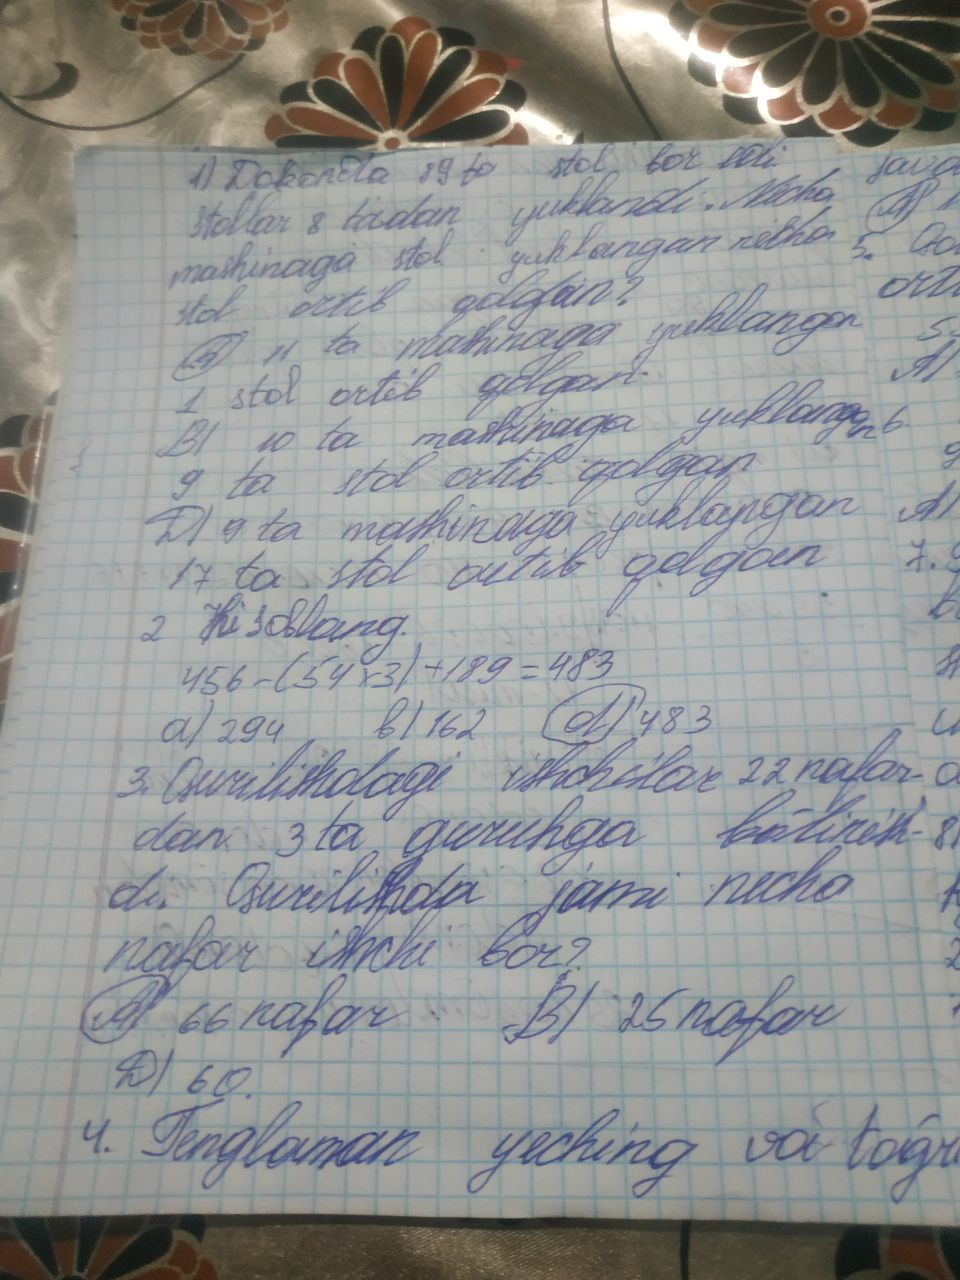 1) Dokonda 89 ta stol bor edi
stollar 8 tadan yuklandi. Necha
mashinaga stol yuklangan necha
stol ortib qolgan?
A) 11 ta mashinaga yuklangan
1 stol ortib qolgan.
B) 10 ta mashinaga yuklangan
9 ta stol ortib qolgan
D) 9 ta mashinaga yuklangan
17 ta stol ortib qolgan
2 Hisoblang.
456-(54x3)+189=483
a) 294 b) 162 d) 483
3. Qurilishdagi ishchilar 22 nafar-
dan 3 ta guruhga
di. Qurilishda jami necha
nafar ishchi bor?
A) 66 nafar B) 25 nafar
D) 60.
4. Tenglaman yeching va
5.
6.
A)
7.